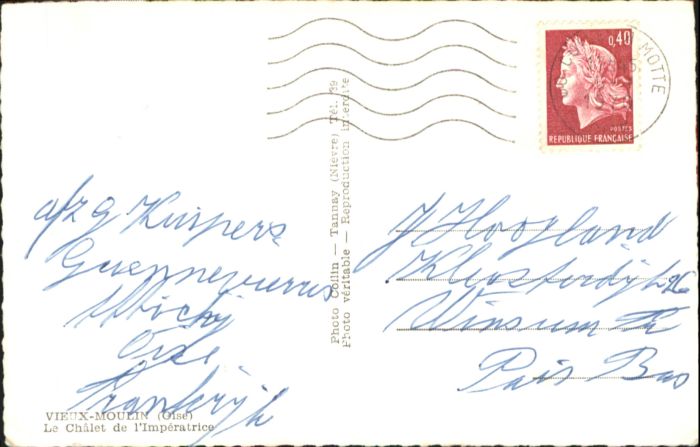 a/z g Kuipers
Guennevieres
Attichy
Oise
Frankrijk
VIEUX-MOULIN (Oise)
Le Châlet de l'Impératrice
Photo Collin — Tannay (Nièvre) Tél. 39
Photo véritable — Reproduction interdite
0,40
POSTES
REPUBLIQUE FRANÇAISE
MOTTE
J Hoogland
Kloosterdijk 26
Winsum
Païs Bas